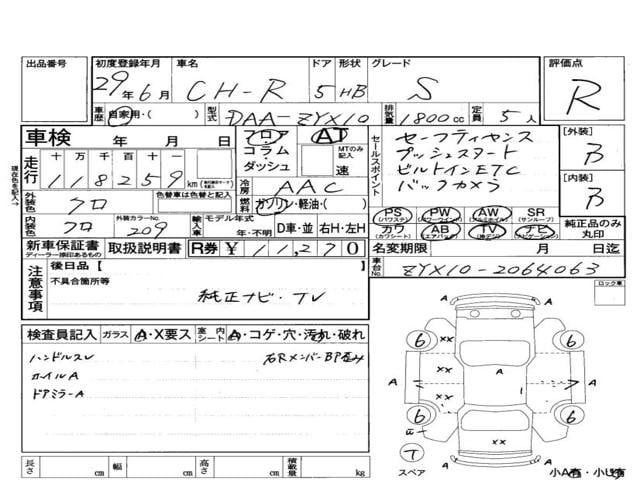 出品番号
初度登録年月 29年6月
車名 CH-R
ドア 5
形状 HB
グレード S
評価点 R
車歴 自家用・( )
型式 DAA-ZYX10
排気量 1800cc
定員 5人
車検 年 月 日
フロア・コラム・ダッシュ
AT
MTのみ記入 速
セールスポイント
セーフティセンス
プッシュスタート
ビルトインETC
バックカメラ
[外装] B
[内装] B
現在色を記入→
走行 十万千百十一
118259km
冷房 AAC
外装色 クロ
色替車は色替と記入
燃料 ガソリン・軽油・( )
内装色 クロ
外装カラーNo. 209
輸入車
モデル年式 年・不明
D車・並 右H・左H
PS (パワステ)
PW (パワーウインド)
AW (アルミホイル)
SR (サンルーフ)
カワ (カワシート)
AB (エアバック)
TV (地デジ)
ナビ (ナビゲーション)
純正品のみ丸印
新車保証書
ディーラー捺印あるもの
取扱説明書
R券 ¥11,270
名変期限 月 日迄
車台No. ZYX10-2064063
注意事項
後日品【
不具合箇所等
純正ナビ・TV
ロック車
検査員記入
ガラス A・X要ス
室内シート A・コゲ・穴・汚れ・破れ
ハンドルスレ
ホイルA
ドアミラーA
右RメンバーBP歪み
A
6 6
XX
XX
A A A
6 6
XX
A A
T
スペア
小A有・小U有
長さ cm
幅 cm
高さ cm
積載量 kg